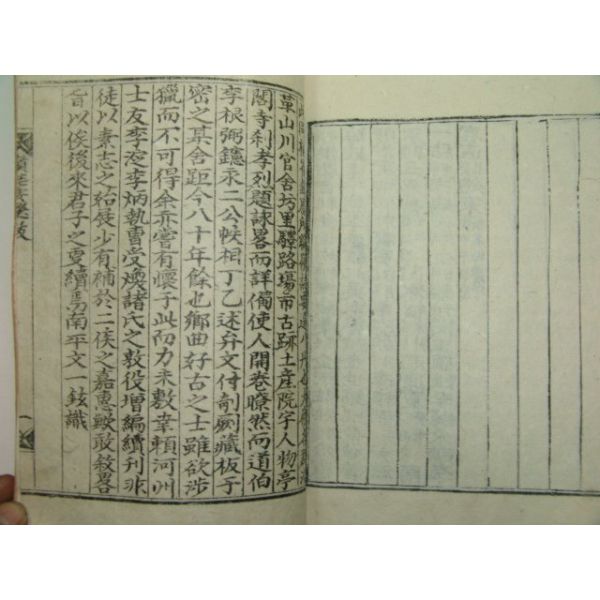 革山川官舍坊里驛路場市古跡土産院宇人物亭
閣寺刹孝烈題詠畧而詳備使人開卷瞭然而道伯
李根弼鑣永二公帙相丁乙述弁文付剞劂藏板于
密之某舍距今八十年餘也鄕曲好古之士雖欲涉
獵而不可得余亦嘗有懷于此而力未敷幸賴河州
士友李李炳執曺受煥諸氏之敦役增編續刊非
徒以素志之始展少有補於二侯之嘉惠歟敢敘畧
旨以俟後來君子之更續焉南平文一鉉識
跋
一